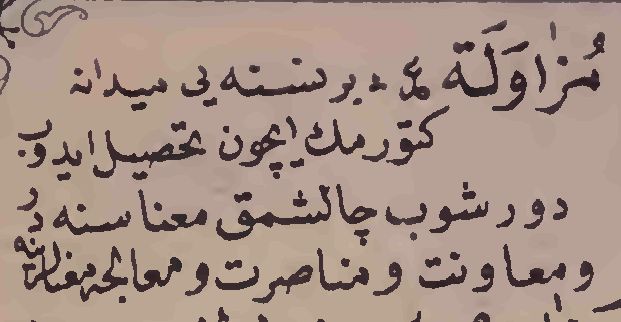 مُزَاوَلَة بر نسنه يی ميدانه
كتورمك ايچون تحصيل ايدوب
دورشوب چالشمق معناسنه در
ومعاونت ومناصرت ومعالجه معنالرينه